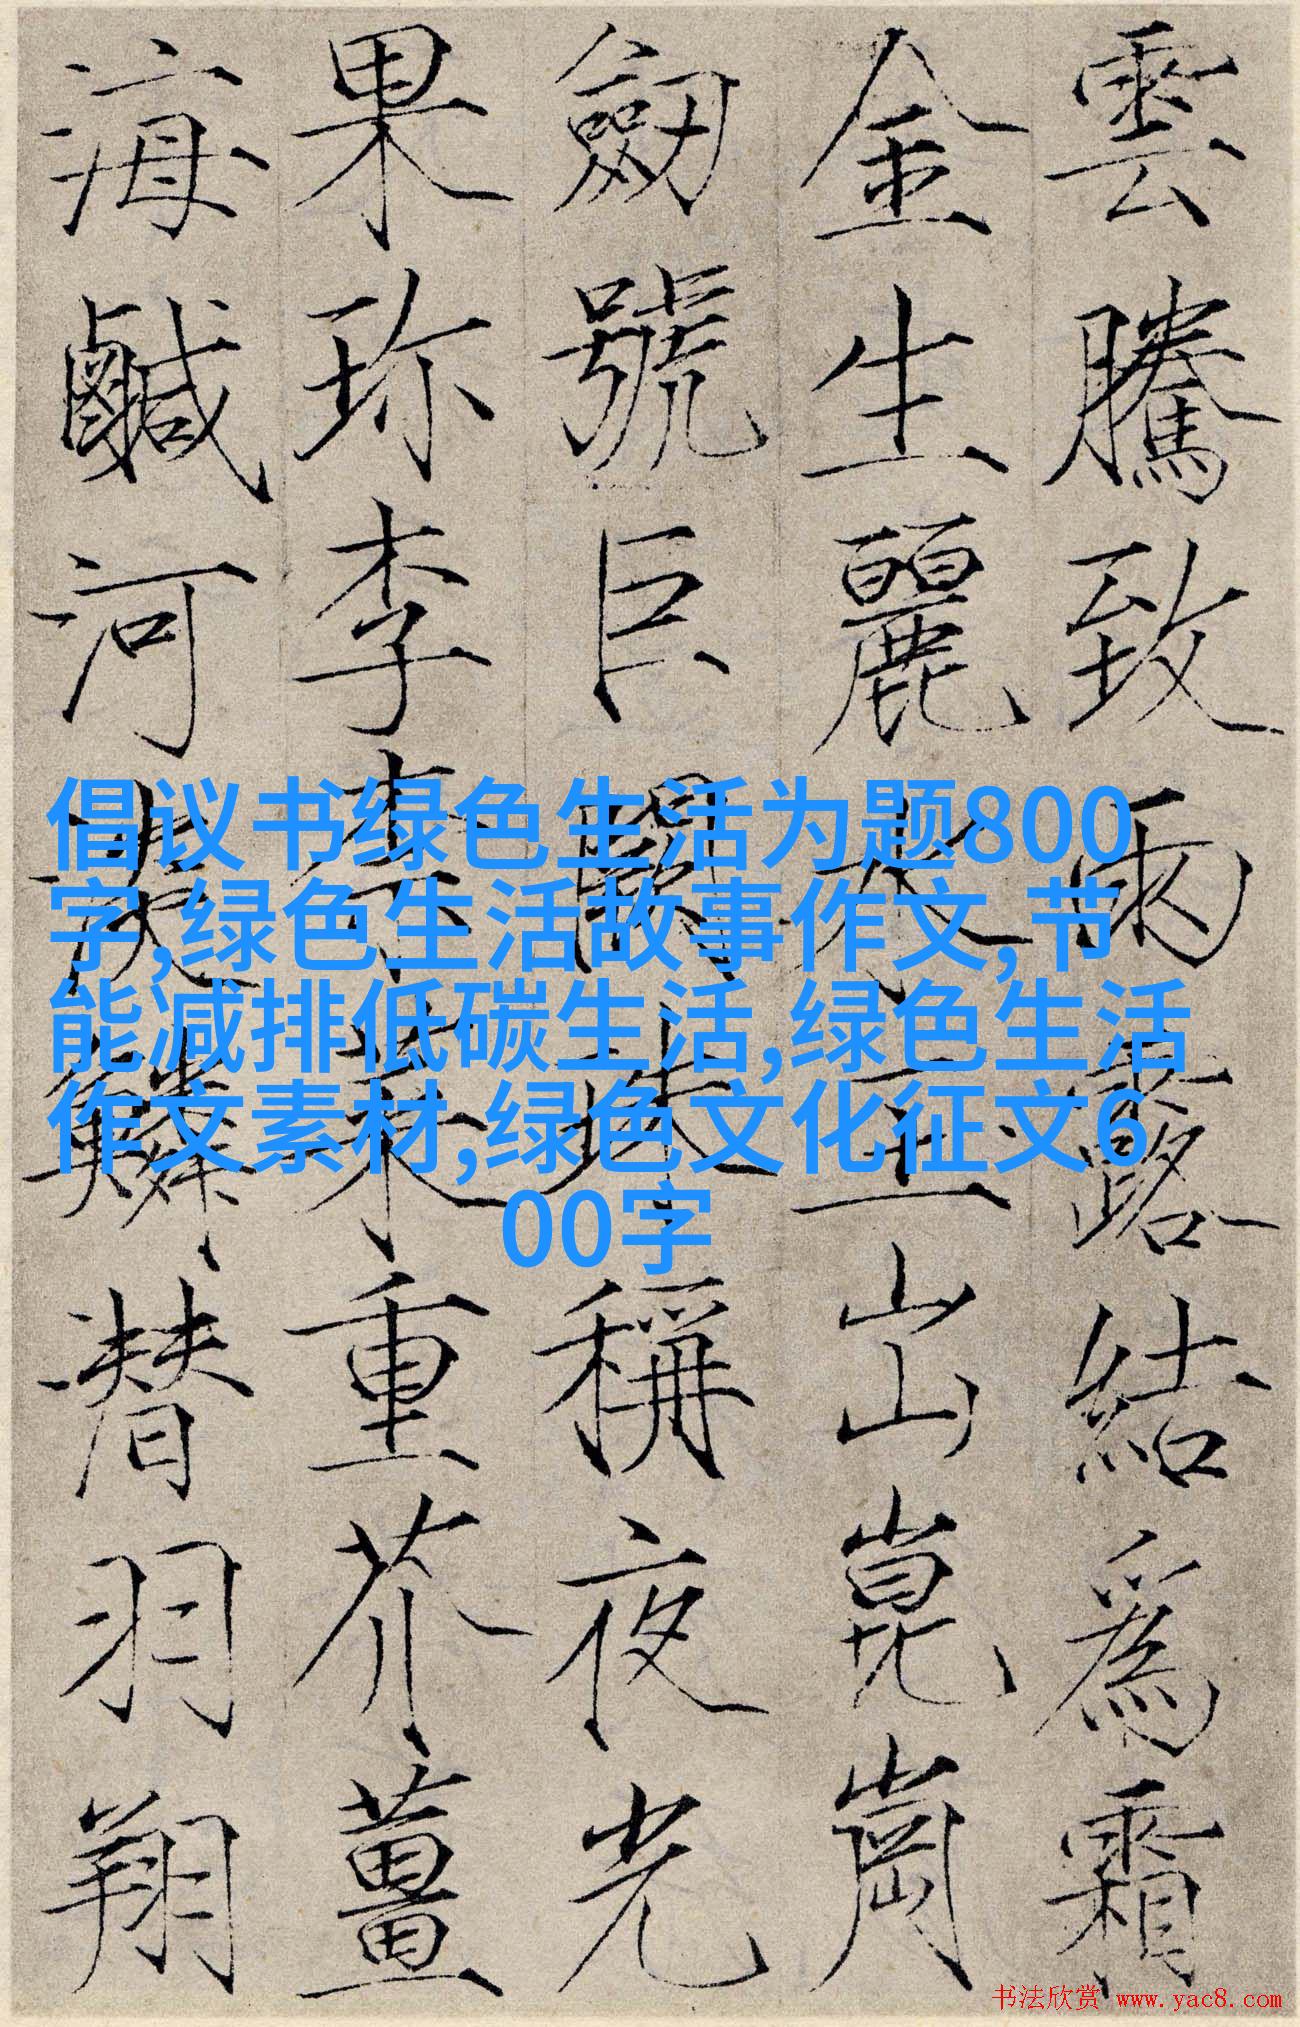 雲騰致雨露結為霜
金生麗水玉出崑崗
劒號巨闕珠稱夜光
果珎李柰菜重芥薑
海鹹河淡鱗潛羽翔
倡议书绿色生活为题800
字,绿色生活故事作文,节
能减排低碳生活,绿色生活
作文素材,绿色文化征文6
00字
书法欣赏 www.yac8.com